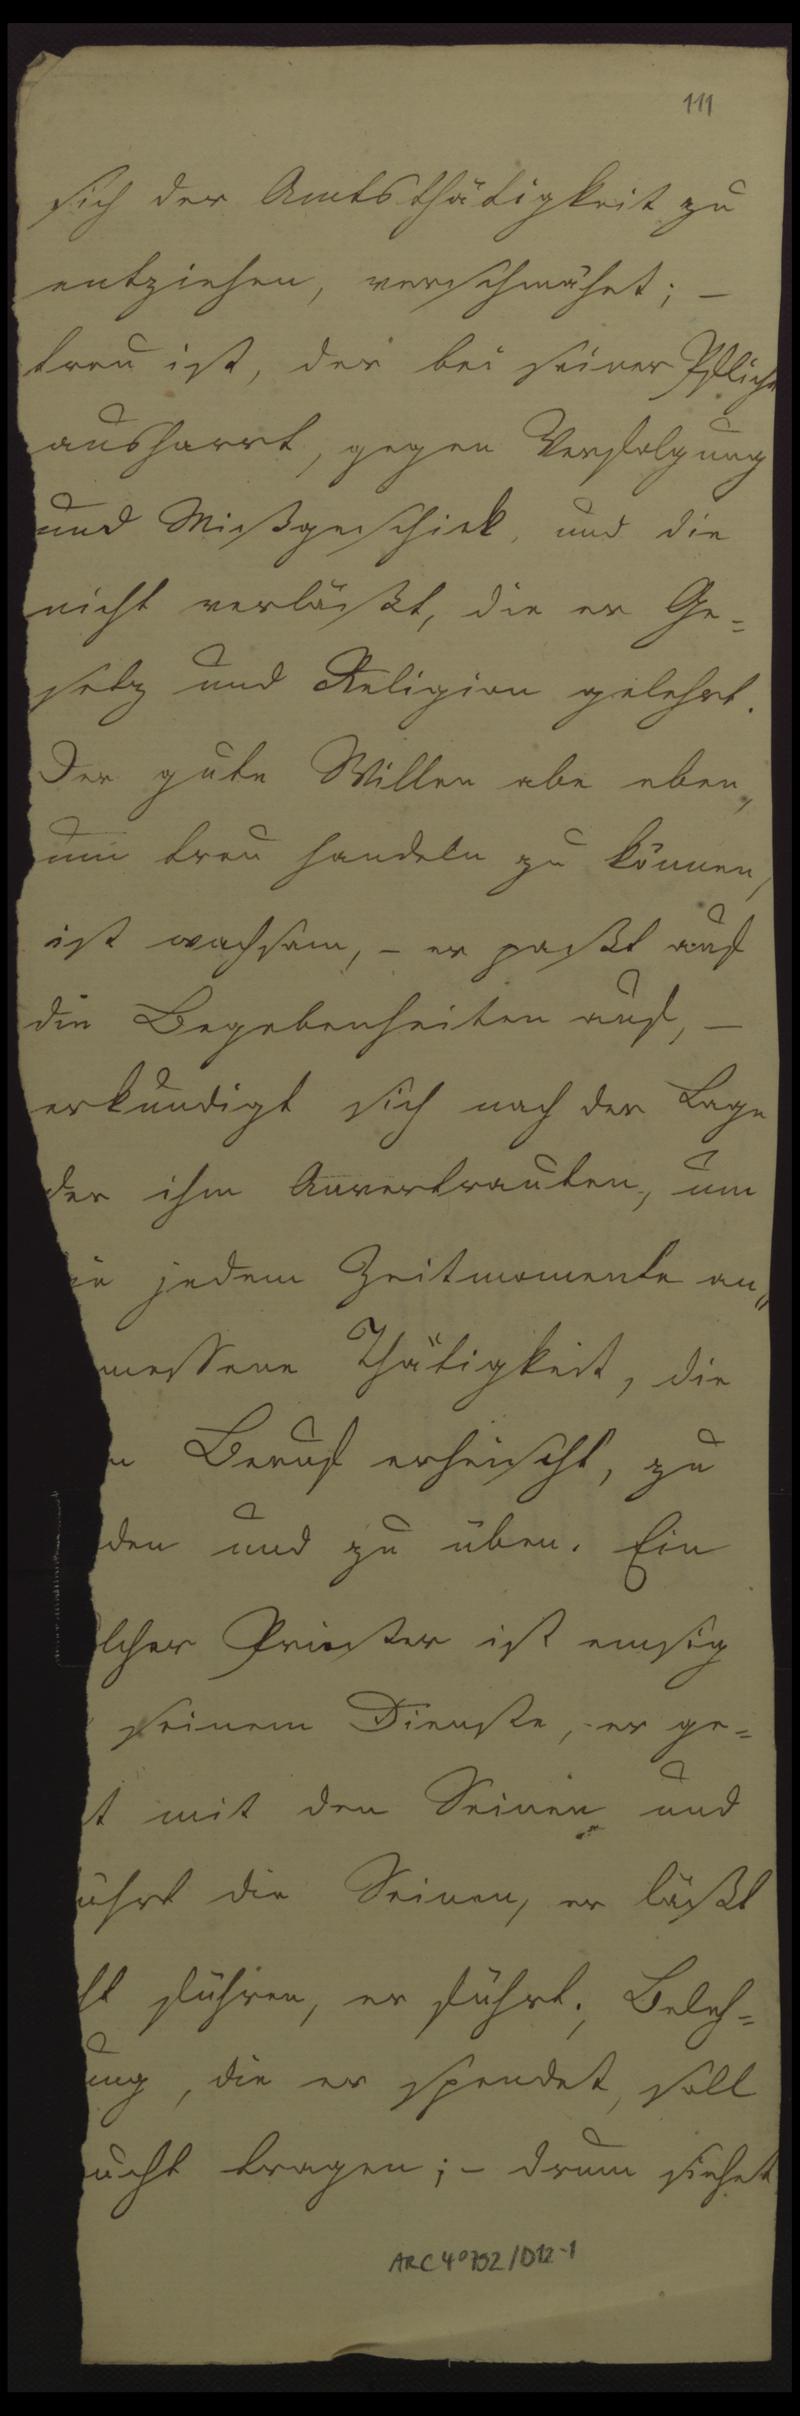 111
sich der Amtsthätigkeit zu
entziehen, verschmähet; –
treu ist, der bei seiner Pflicht
ausharrt, gegen Verfolgung
und Mißgeschick, und die
nicht verläßt, die er Ge=
setz und Religion gelehrt.
Der gute Willen abe eben,
um treu handeln zu können,
ist wachsam, – er paßt auf
die Begebenheiten auf, –
erkundigt sich nach der Lage
der ihm Anvertrauten, um
die jedem Zeitmomente an„
messene Thätigkeit, die
n Beruf erheischt, zu
den und zu üben. Ein
lcher Priester ist emsig
seinem Dienste, er ge=
t mit den Seinen und
ührt die Seinen, er läßt
ht führen, er führt; Beleh=
ung, die er spendet, soll
ucht tragen; – drum siehet
ARC 4º 792/D12-1